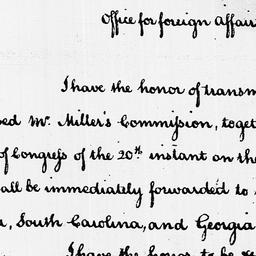 Office for foreign Affair
I have the honor of transm
ed Mr. Miller's Commission, toget
of Congress of the 20th instant on th
all be immediately forwarded to
, South Carolina, and Georgia
I have the honor to be